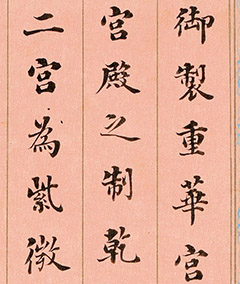 御製重華宮
宮殿之制乾
二宮為紫微